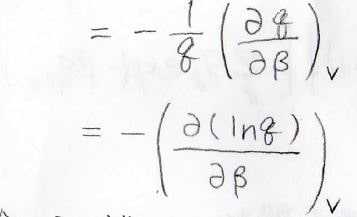 = - 1/q (∂q/∂β)_V
= - (∂(ln q)/∂β)_V